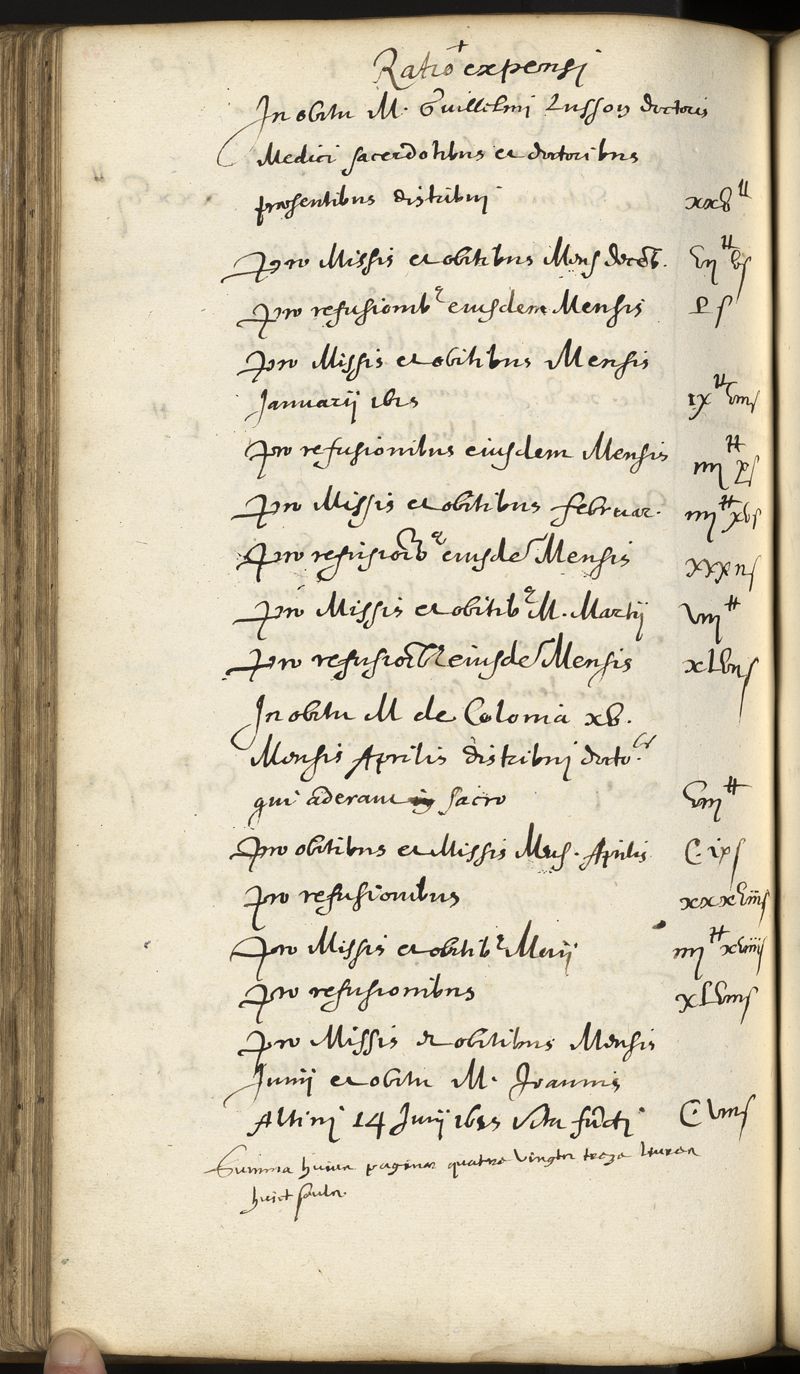 Ratio expensi
In obitu M. Guillelmi Lusson doctoris
Medici sacerdotibus et doctoribus
præsentibus distribui xxv ₶
Pro Missis et obitibus Mens decēb. vii ₶ v s
Pro refusionib9 eiusdem Mensis L s
Pro Missis et obitibus Mensis
Januarij 1615 ix ₶ viii s
Pro refusionibus eiusdem Mensis iiii ₶ x s
Pro Missis et obitibus februar. iiii ₶ xv s
Pro refusioīb9 eiusdē Mensis xxxii s
Pro Missis et obitib9 M. Martij viii ₶
Pro refusioīb9 eiusdē Mensis xLvii s
In obitu M de Colonia xv.
Mensis Aprilis distribui docto.
qui aderant sacro viii ₶
Pro obitibus et Missis Mens. Aprilis C.ix s
Pro refusionibus xxxviii s
Pro Missis et obitib9 Maij iiii ₶ xviiii s
Pro refusionibus xLviii s
Pro Missis et obitibus Mensis
Junij et obitu M. Joannis
Altini 14 Junij 1615 vita fūcti C.viii s
Summa huius paginæ quatre vingtz treze livres
huict soulz.